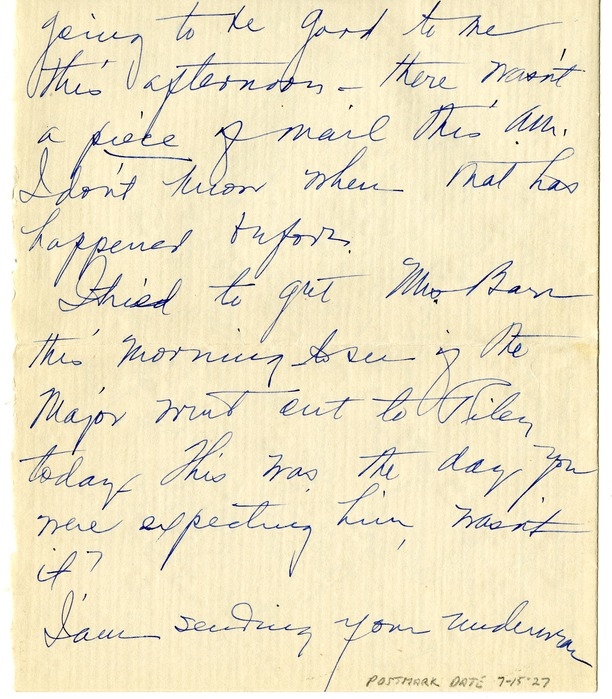 going to be good to me
this afternoon - there wasn't
a piece of mail this am.
I don't know when that has
happened before.
I tried to get Mrs Barr
this morning to see if the
Major went out to Riley
today. This was the day you
were expecting him, wasn't
it?
I am sending your underwear
POSTMARK DATE 7-15-27